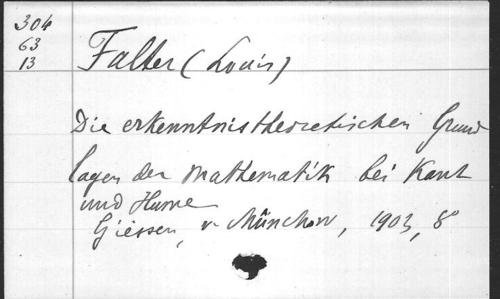 304
63
13
Falter (Louis)
Die erkenntnistheoretischen Grund
lagen der Mathematik bei Kant
und Hume
Giessen, v. Münchow, 1903, 8°